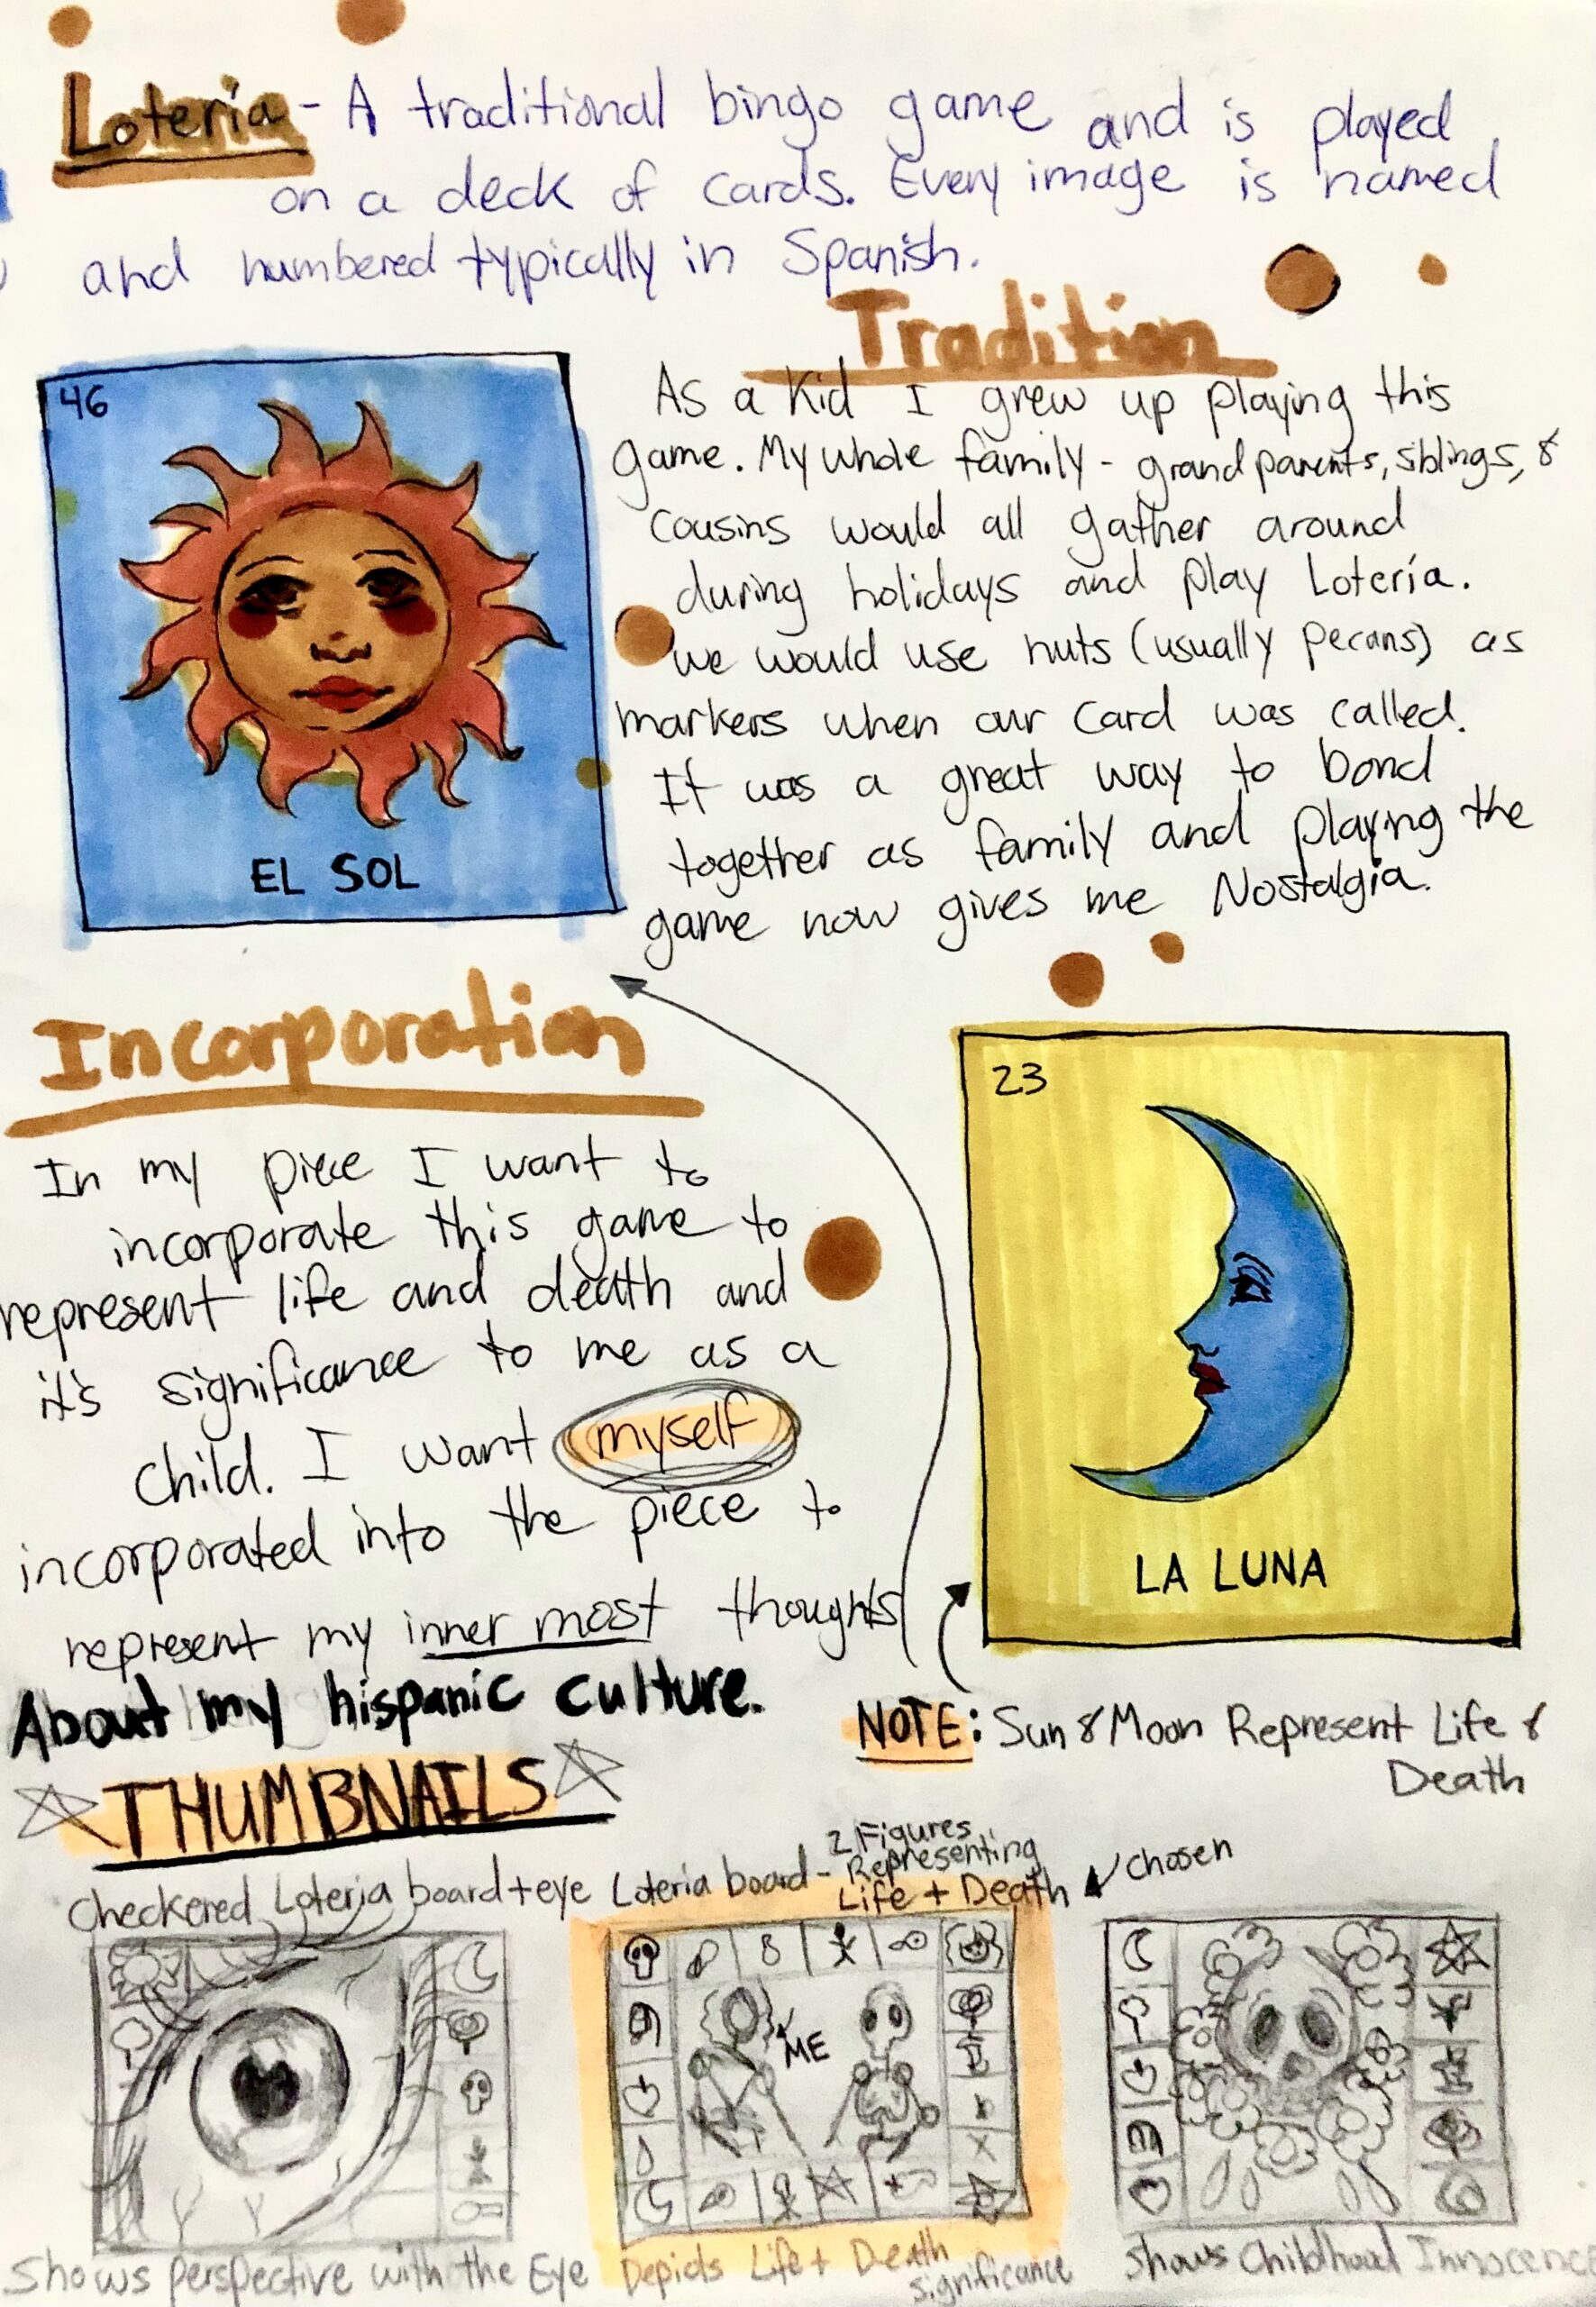 Lotería - A traditional bingo game and is played
on a deck of cards. Every image is named
and numbered typically in Spanish.
Tradition
46
EL SOL
As a kid I grew up playing this
game. My whole family - grandparents, siblings, &
cousins would all gather around
during holidays and play Lotería.
we would use nuts (usually pecans) as
markers when our card was called.
It was a great way to bond
together as family and playing the
game now gives me Nostalgia.
Incorporation
In my piece I want to
incorporate this game to
represent life and death and
it's significance to me as a
child. I want myself
incorporated into the piece to
represent my inner most thoughts
About my hispanic culture.
23
LA LUNA
NOTE: Sun & Moon Represent Life &
Death
THUMBNAILS
Checkered Loteria board + eye
Loteria board - 2 Figures
Representing
Life + Death
chosen
ME
Shows perspective with the Eye
Depicts Life + Death
significance
Shows Childhood Innocence